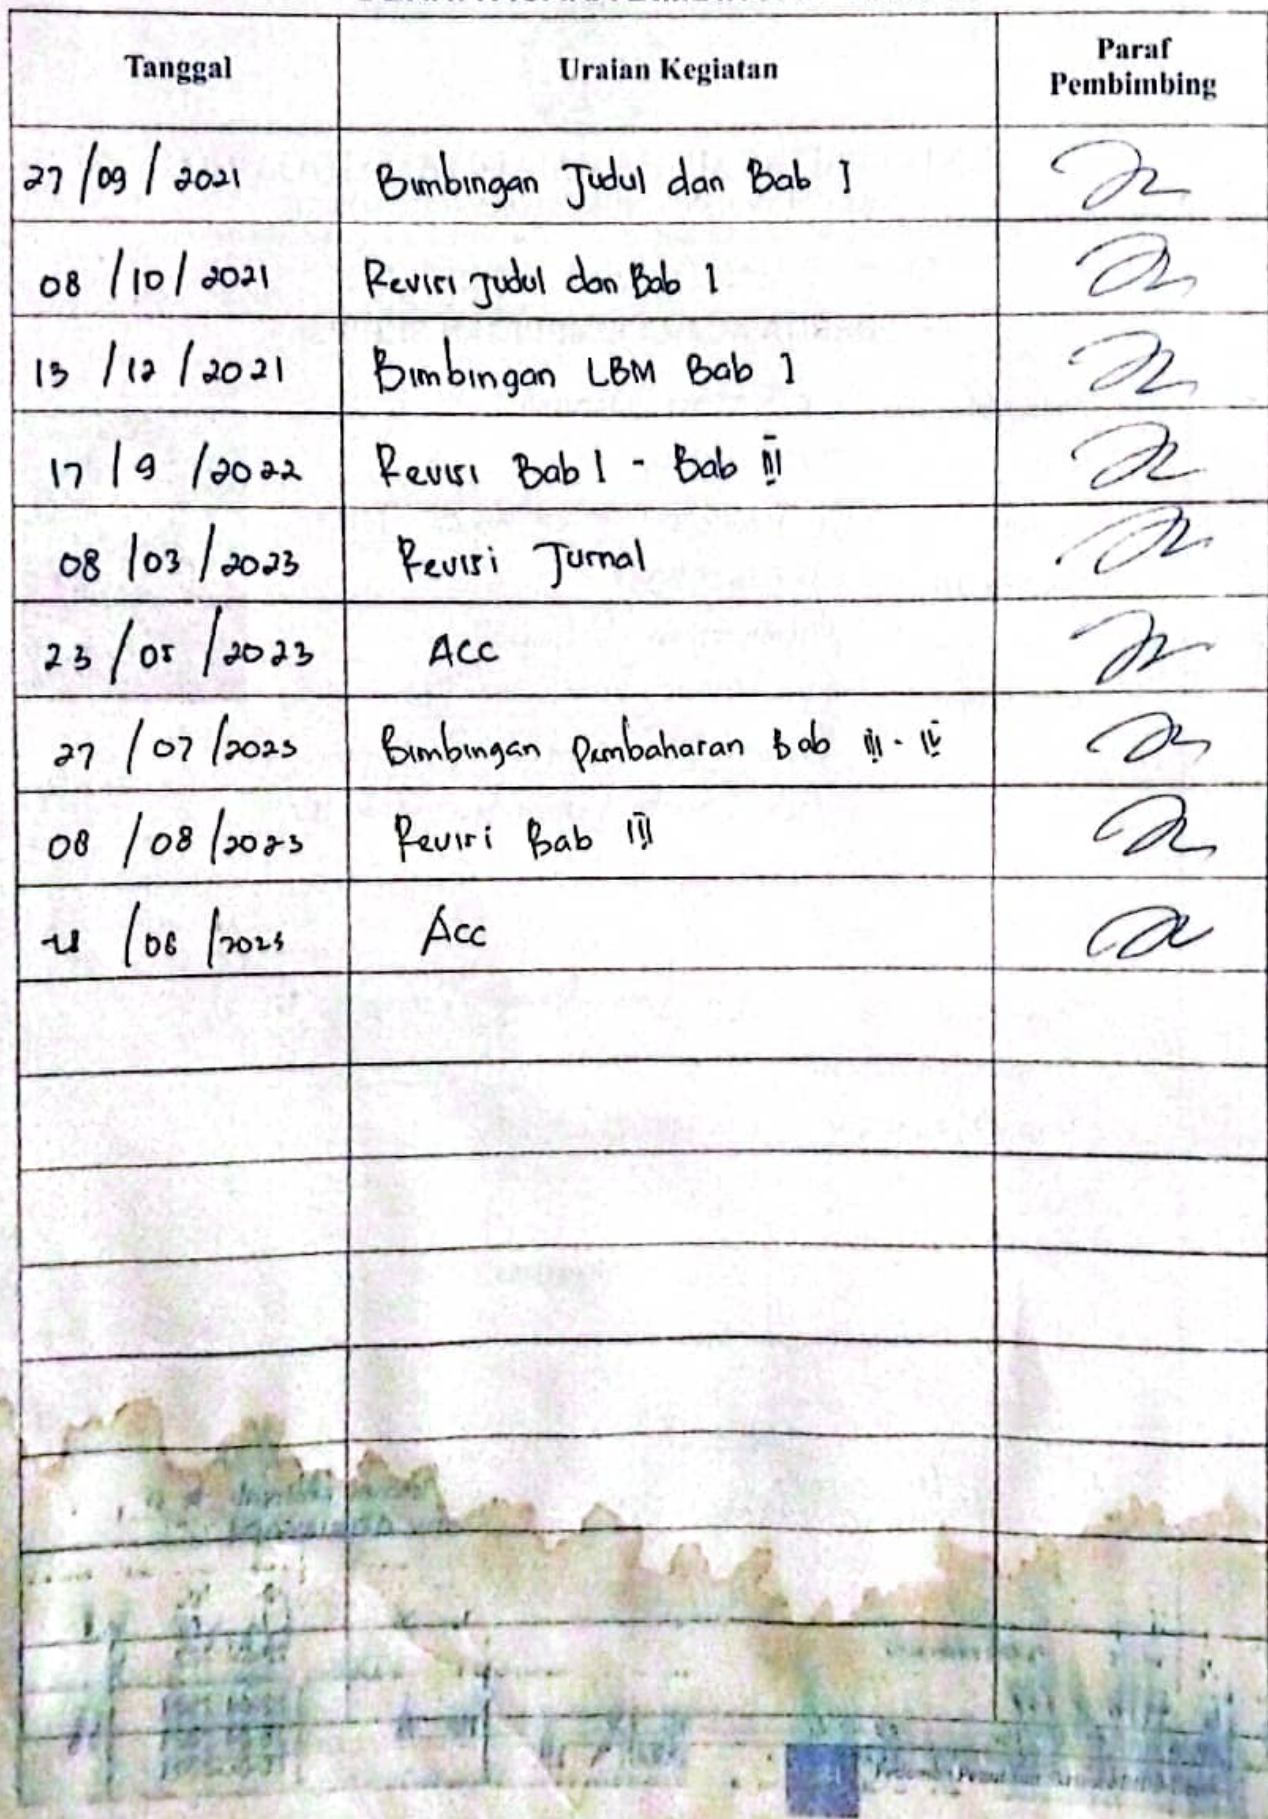 Tanggal Uraian Kegiatan Paraf
Pembimbing
27/09/2021 Bimbingan Judul dan Bab I
08/10/2021 Revisi Judul dan Bab 1
13/12/2021 Bimbingan LBM Bab 1
17/9/2022 Revisi Bab 1 - Bab III
08/03/2023 Revisi Jurnal
23/05/2023 Acc
27/07/2023 Bimbingan Pembahasan Bab III - IV
08/08/2023 Revisi Bab III
/08/2023 Acc